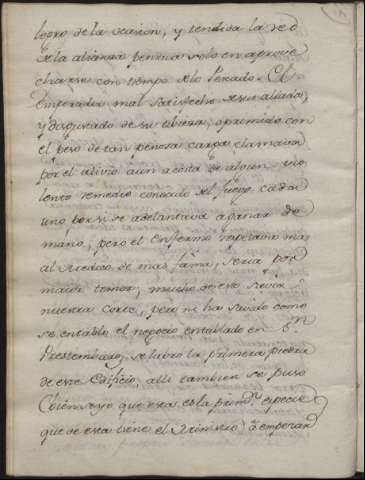 logro de la ocasion, y tendida la red
de la alianza pensva solo en aprove
charse con tiempo de lo Pescado. El
Emperador mal satisfecho de su aliado,
y disgustado de su tibieza, oprimido con
el peso de tan penosa carga clamava
por el alivio aun acosta de algun vio
lento remedio conocido el juego, cada
uno por si se adelantava a ganar de
mano, pero el enfermo respetava mas
al Medico de mas fama, seria por
maior temor, mucho de esto savia
nuestra Corte, pero ni ha savido como
se entablo el negocio entablado en Sn
Prestemburg, se labró la primera piedra
de este Edificio, alli tambien se puso
que esta es la prim.ª especie
que de esta tiene el Ministro. El emperad